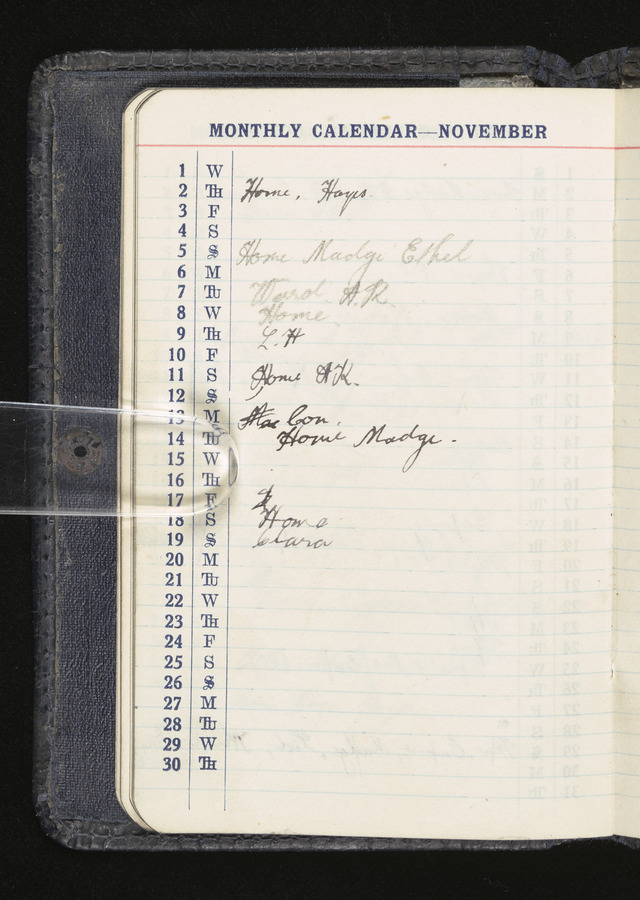 MONTHLY CALENDAR—NOVEMBER
1 W
2 TH Home, Hays.
3 F
4 S
5 S Home Madge Ethel
6 M
7 TU Ward A.R.
8 W Home
9 TH L.H
10 F
11 S Home AK.
12 S
13 M Con.
14 TU Home Madge.
15 W
16 TH
17 F
18 S Home
19 S Clara
20 M
21 TU
22 W
23 TH
24 F
25 S
26 S
27 M
28 TU
29 W
30 TH